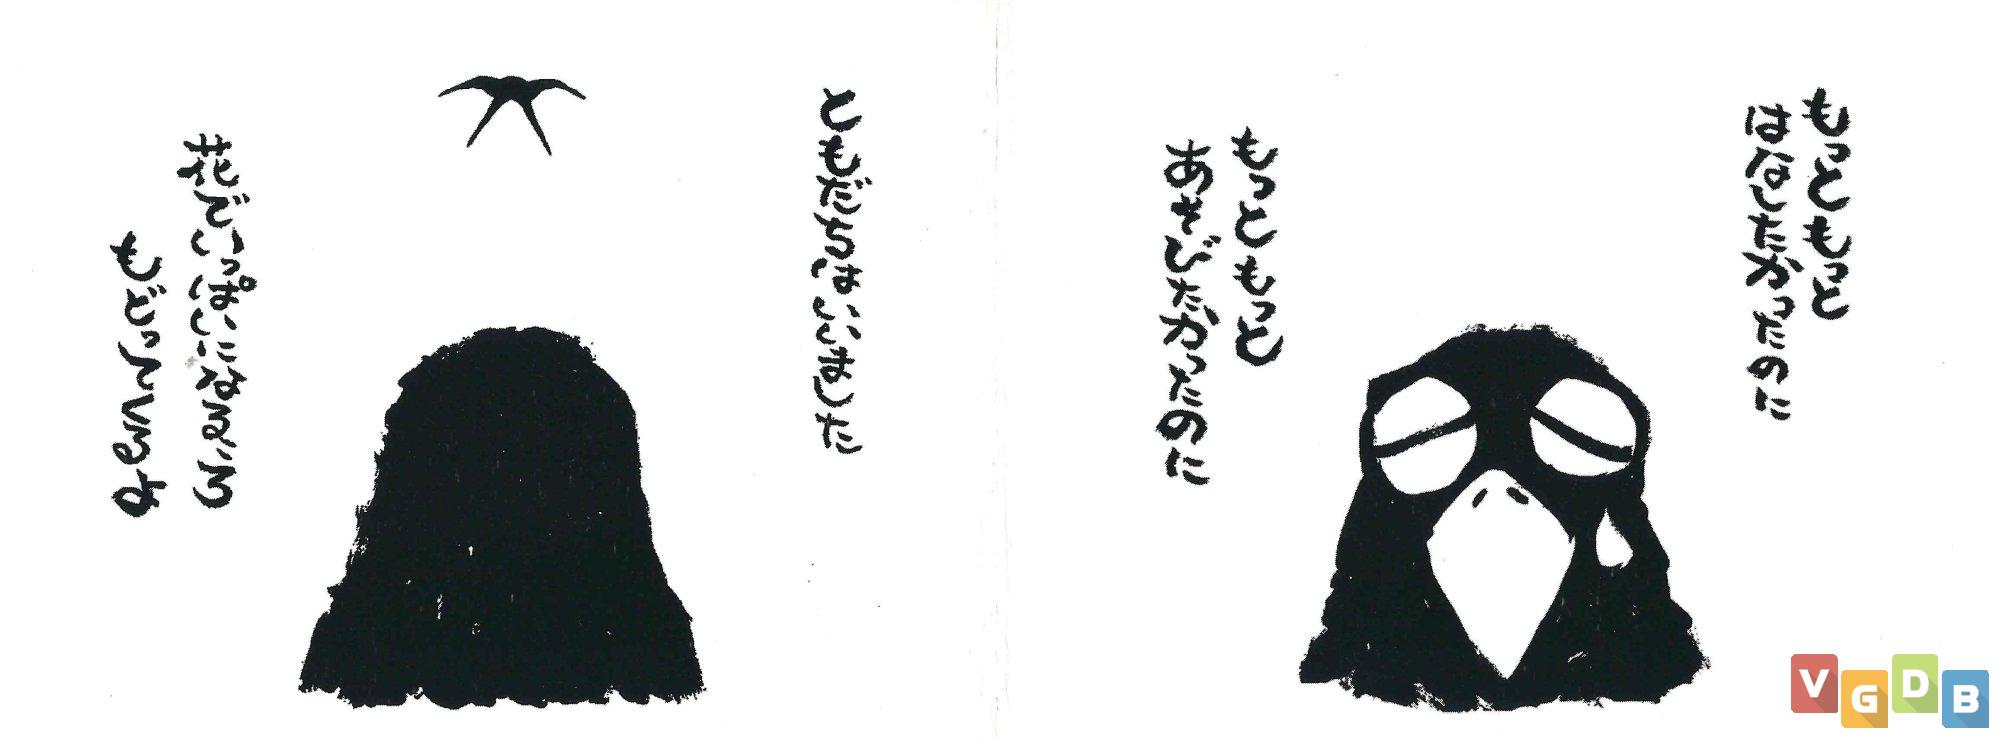 もっともっと
はなしたかったのに
もっともっと
あそびたかったのに
ともだちはいいました
花でいっぱいになるころ
もどってくるよ
VGDB